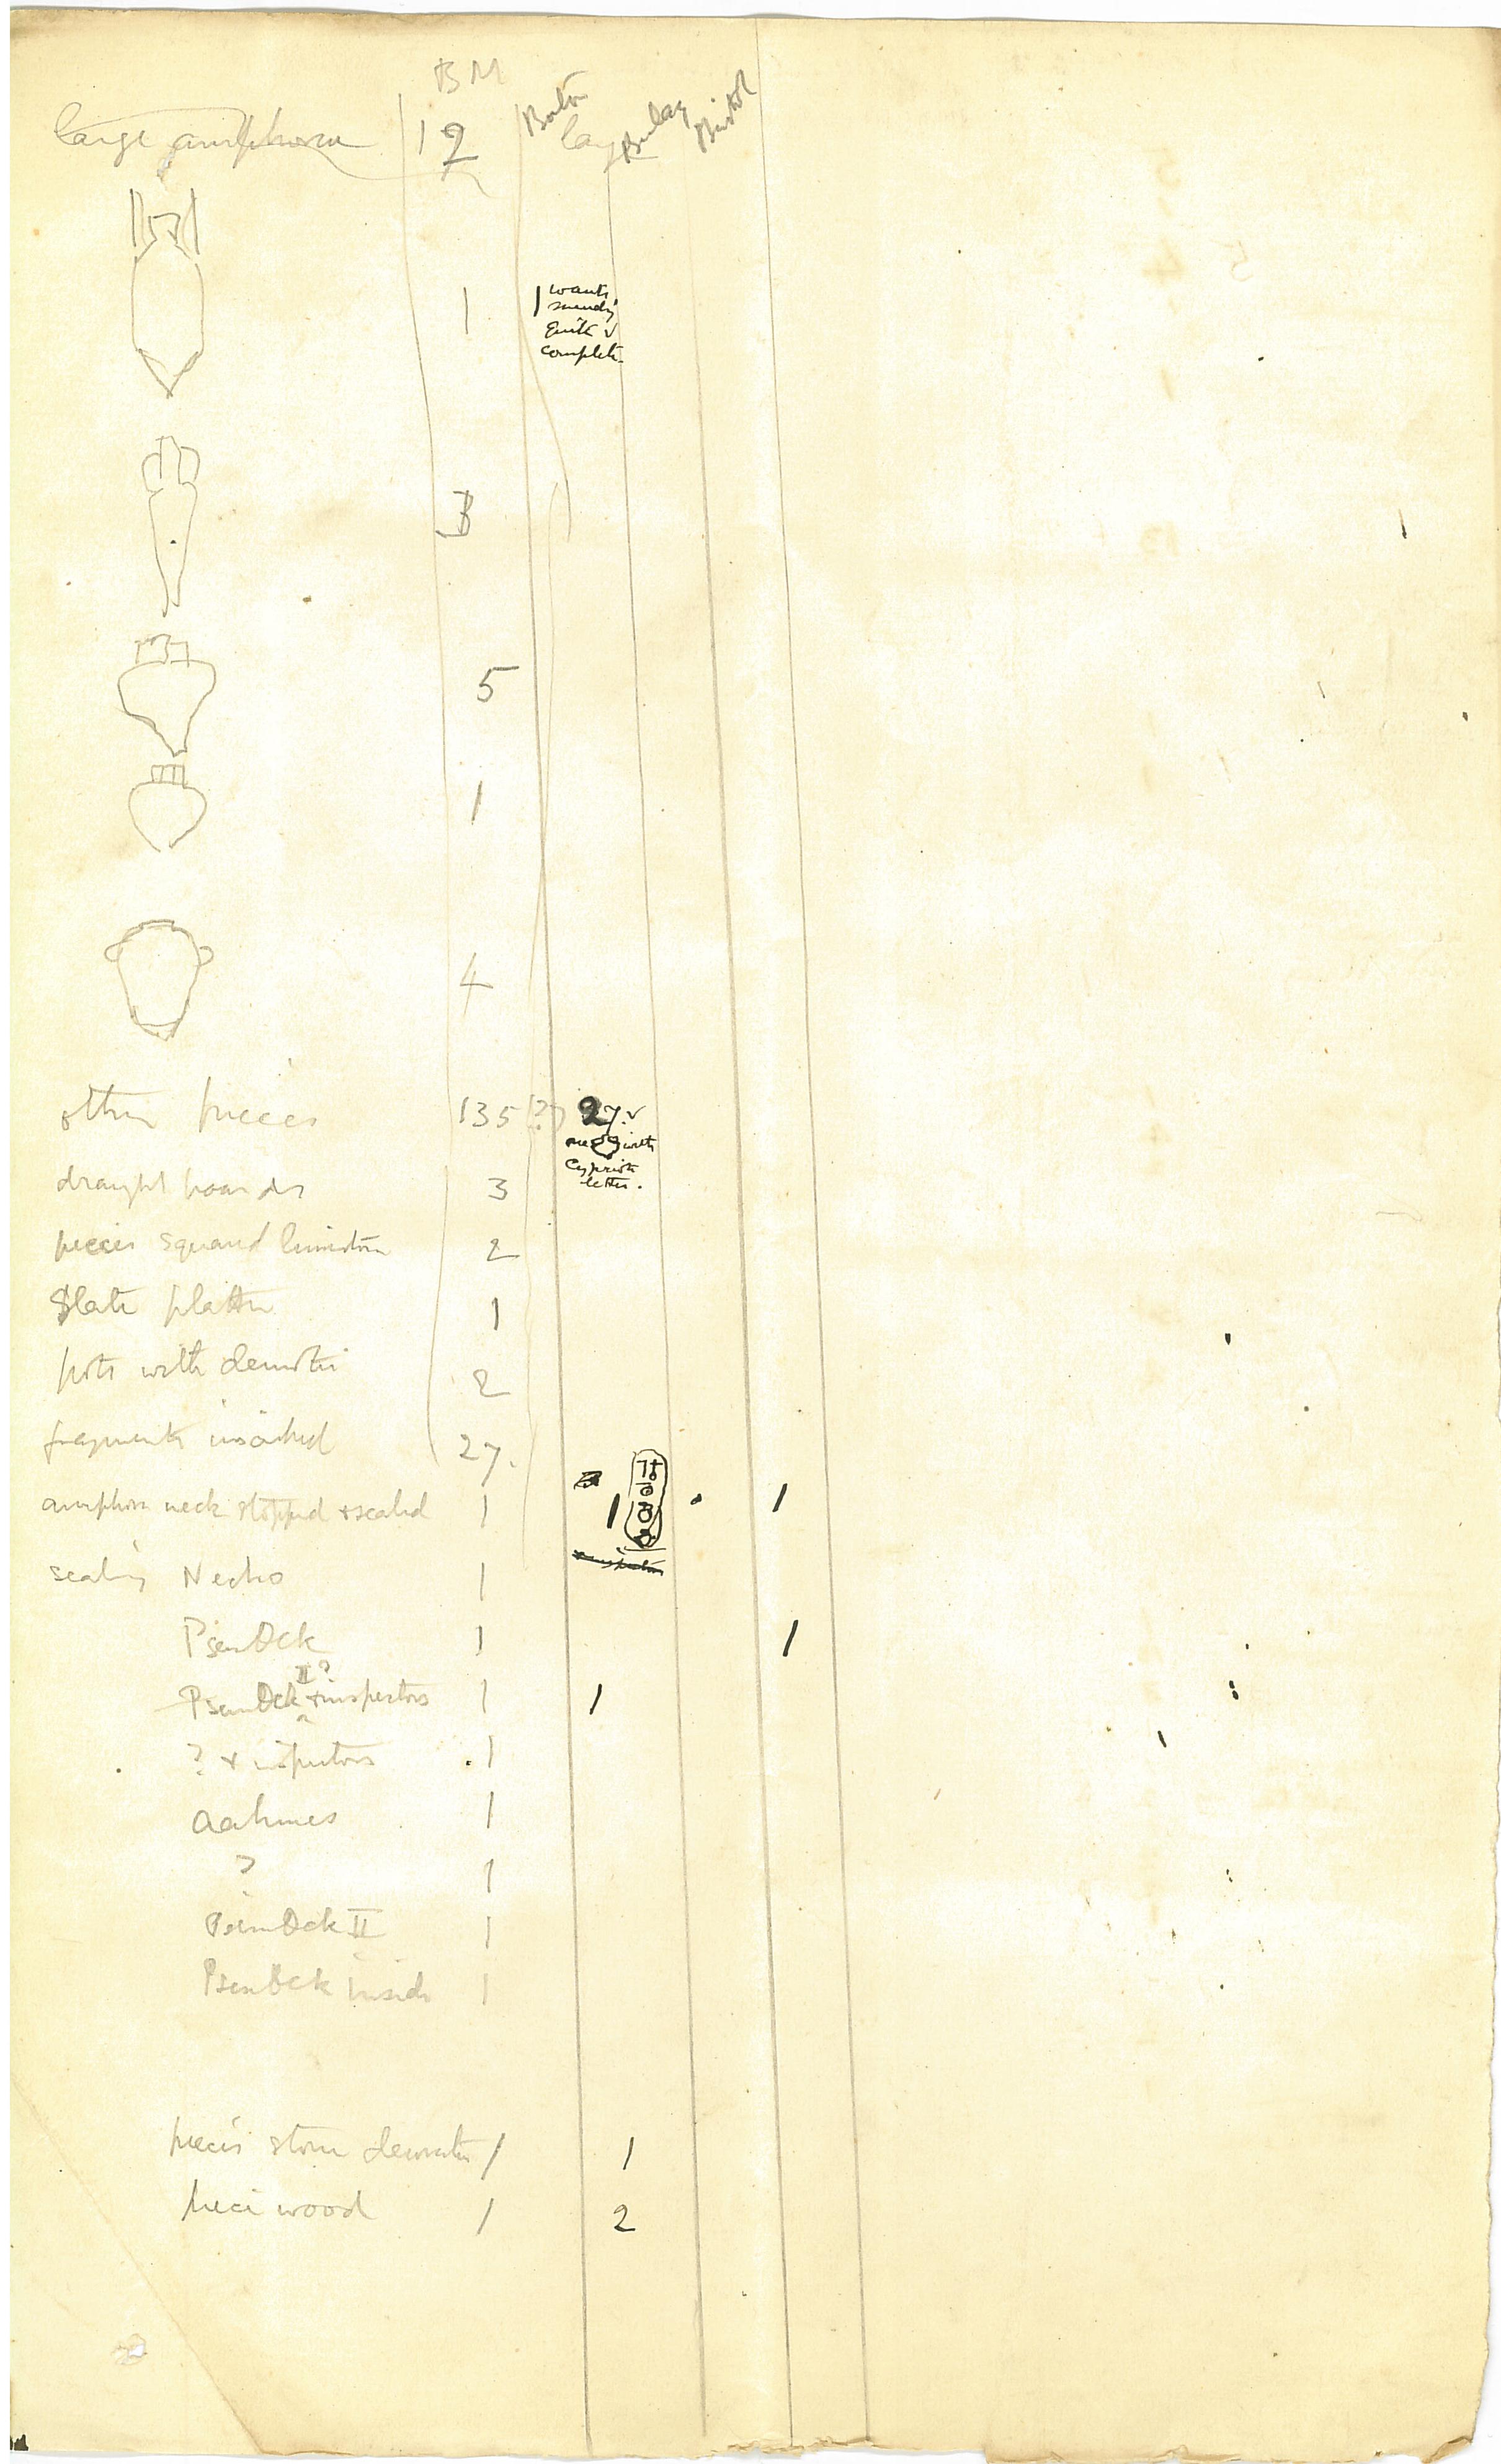 BM Boston Bulaq Bristol
large amphora 12
1 1 wants
mending
Quite ✓
complete.
3
5
1
4
other pieces 135 (?) 27. ✓
one with
Cypriote
letter.
draught boards 3
pieces squared limestone 2
Slate platter 1
pots with demotic 2
fragments inscribed 27.
amphora neck stopped + sealed 1 1 1
sealing Necho 1
Psamtek 1 1
Psamtek II? + inspectors 1 1
? + inspectors 1
Aahmes 1
? 1
Psamtek II 1
Psamtek inside 1
pieces stone 1 1
piece wood 1 2